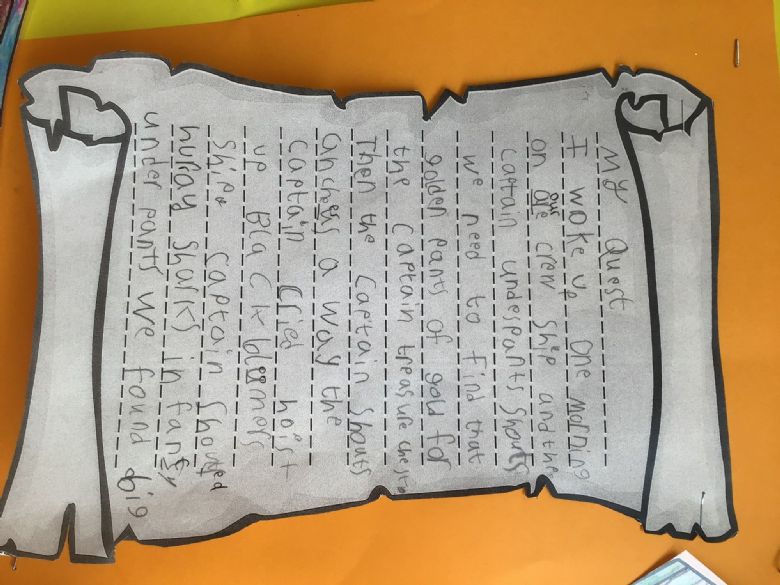 My Quest
I woke up one morning
on our crew ship and the
captain underpants shouts
we need to find that
golden pants of gold for
the captain treasure chest.
Then the captain shouts
anchers a way the
captain cried hoist
up Black bloomers
ship. captain shouted
huray sharks in fancy
under pants we found big